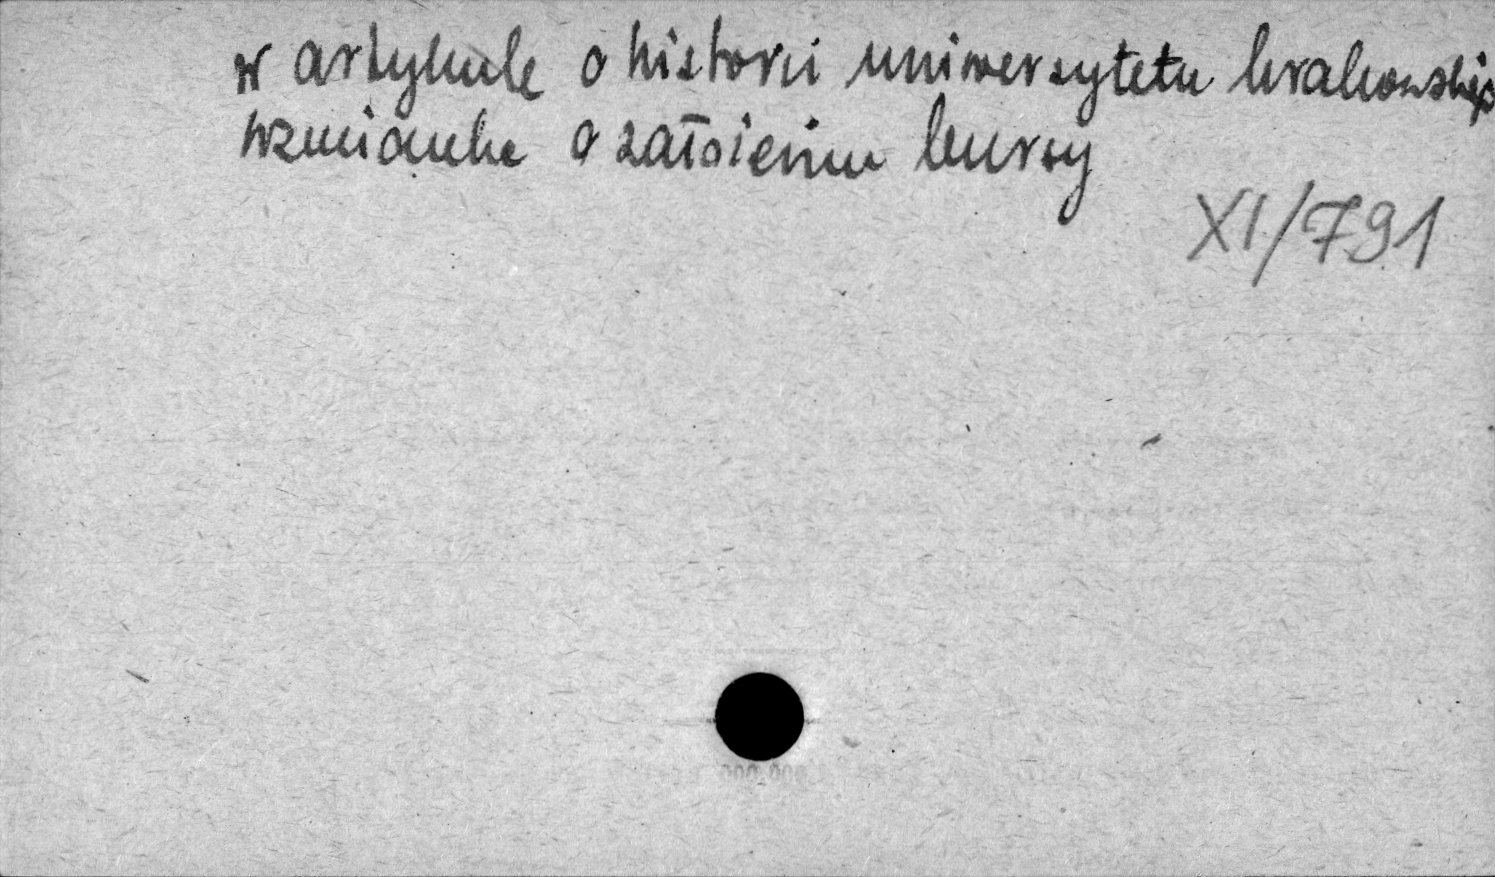 w artykule o historii uniwersytetu krakowskiego
wzmianka o założeniu bursy
XI/791